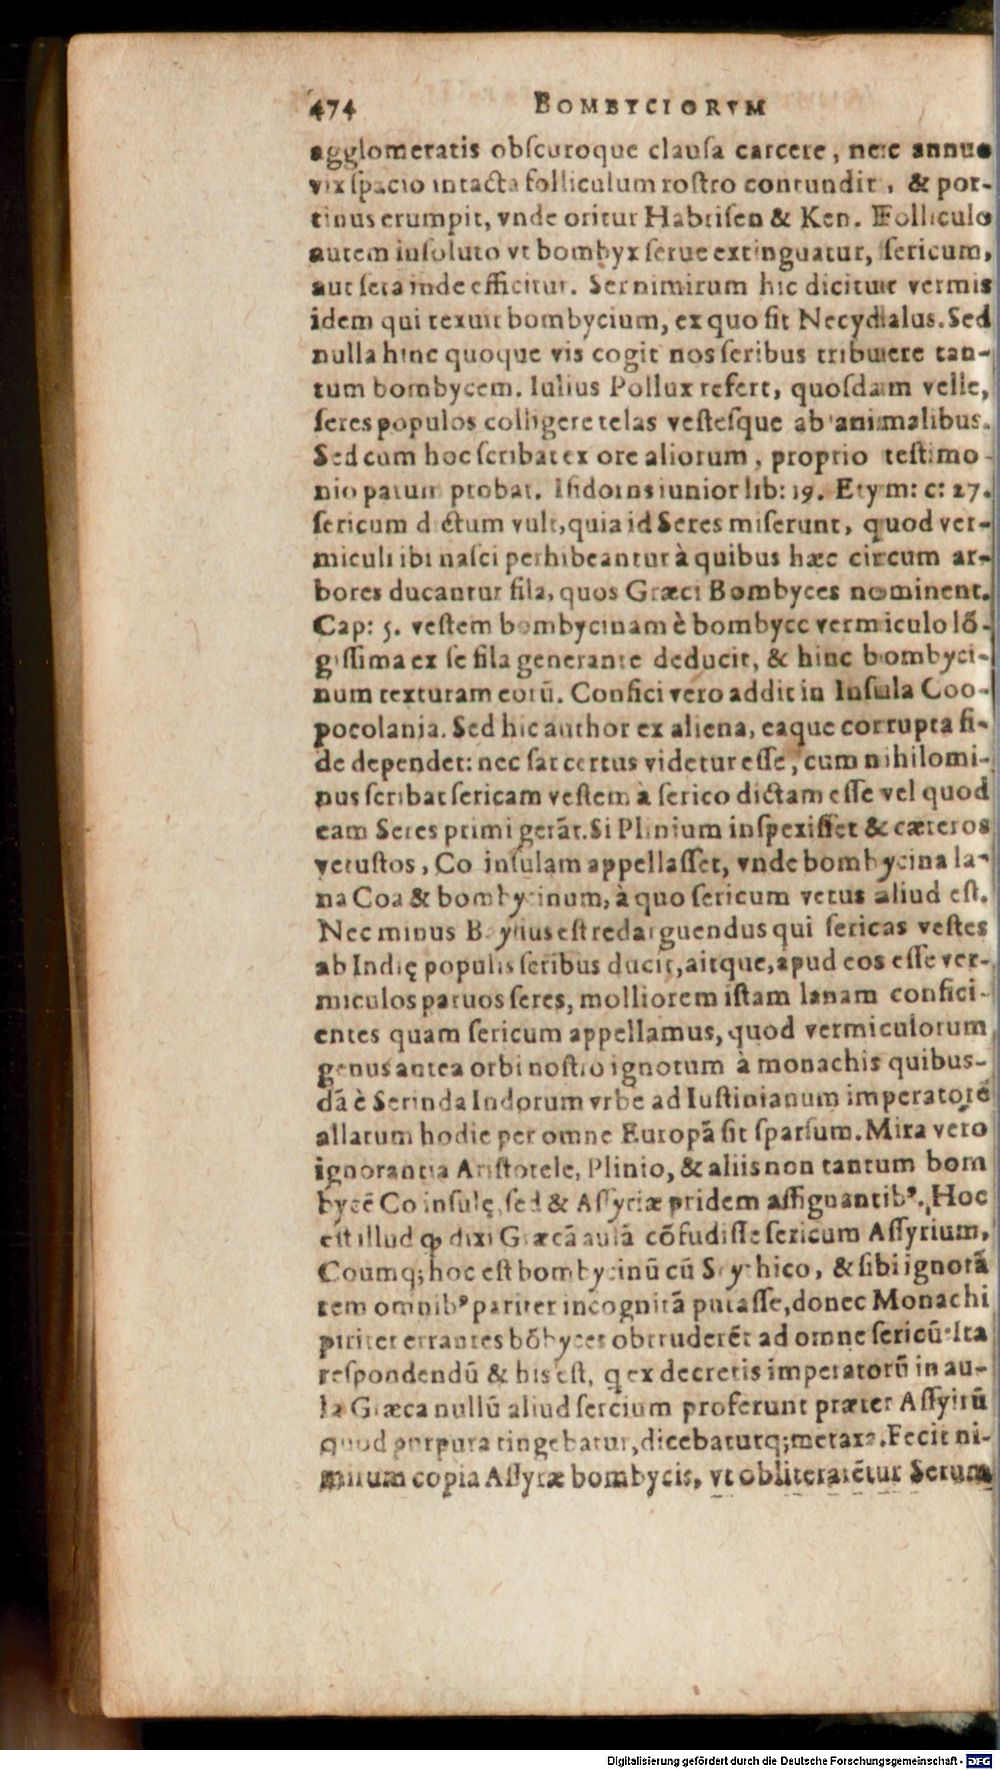 474 BOMBYCIORVM
agglomeratis obſcuroque clauſa carcere, nec annuo
vix ſpacio intacta folliculum roſtro contundit, & por-
tinus erumpit, vnde oritur Habriſen & Ken. Folliculo
autem inſoluto vt bombyx ſerue extinguatur, ſericum,
aut ſeta inde efficitur. Ser nimirum hic dicitur vermis
idem qui texuit bombycium, ex quo fit Necydalus. Sed
nulla hinc quoque vis cogit nos ſeribus tribuere tan-
tum bombycem. Iulius Pollux refert, quoſdam velle,
ſeres populos colligere telas veſteſque ab animalibus.
Sed cum hoc ſcribat ex ore aliorum, proprio teſtimo-
nio parum probat. Iſidorus iunior lib: 19. Etym: c: 27.
ſericum dictum vult, quia id Seres miſerunt, quod ver-
miculi ibi naſci perhibeantur à quibus hæc circum ar-
bores ducantur fila, quos Græci Bombyces nominent.
Cap: 5. veſtem bombycinam è bombyce vermiculo lõ-
giſſima ex ſe fila generante deducit, & hinc bombyci-
num texturam eorũ. Confici vero addit in Inſula Coo-
pocolania. Sed hic author ex aliena, eaque corrupta fi-
de dependet: nec ſat certus videtur eſſe, cum nihilomi-
nus ſcribat ſericam veſtem à ſerico dictam eſſe vel quod
eam Seres primi gerãt. Si Plinium inſpexiſſet & cæteros
vetuſtos, Co inſulam appellaſſet, vnde bombycina la-
na Coa & bombycinum, à quo ſericum vetus aliud eſt.
Nec minus Bayſius eſt redarguendus qui ſericas veſtes
ab Indię populis ſeribus ducit, aitque, apud eos eſſe ver-
miculos paruos ſeres, molliorem iſtam lanam confici-
entes quam ſericum appellamus, quod vermiculorum
genus antea orbi noſtro ignotum à monachis quibus-
dã è Serinda Indorum vrbe ad Iuſtinianum imperatorẽ
allatum hodie per omne Europã ſit ſparſum. Mira vero
ignorantia Ariſtotele, Plinio, & aliis non tantum bom
bycẽ Co inſulę, ſed & Aſſyriæ pridem aſſignantibꝰ. Hoc
eſt illud ꝙ dixi Græcã aulã cõfudiſſe ſericum Aſſyrium,
Coumq; hoc eſt bombycinũ cũ Scythico, & ſibi ignorã
tem omnibꝰ pariter incognitã putaſſe, donec Monachi
pariter errantes bõbyces obtruderẽt ad omne ſericũ. Ita
reſpondendũ & his eſt, q ex decretis imperatorũ in au-
la Græca nullũ aliud ſercium proferunt præter Aſſyirũ
quod purpura tingebatur, dicebaturq; metaxa. Fecit ni-
mirum copia Aſſyræ bombycis, vt obliterarẽtur Serum
Digitalisierung gefördert durch die Deutsche Forschungsgemeinschaft - DFG